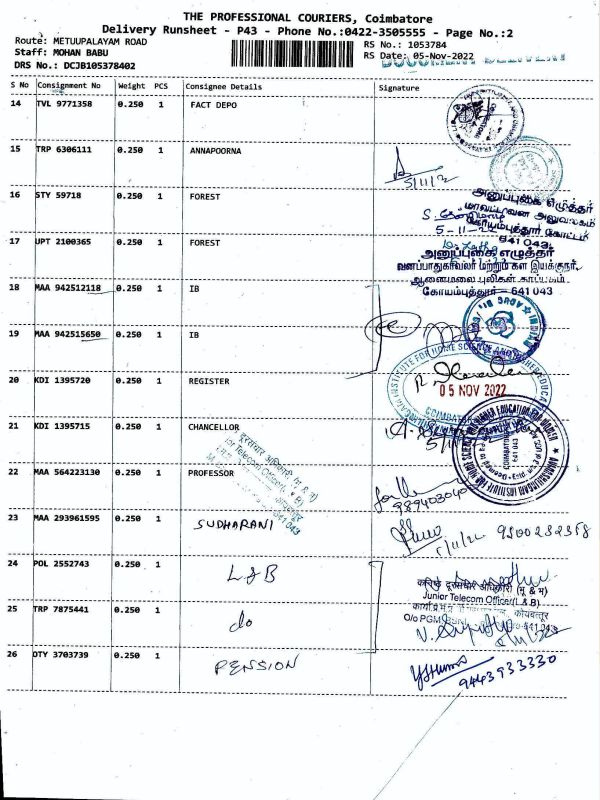 THE PROFESSIONAL COURIERS, Coimbatore
Delivery Runsheet - P43 - Phone No.:0422-3505555 - Page No.:2
Route: METUUPALAYAM ROAD RS No.: 1053784
Staff: MOHAN BABU RS Date: 05-Nov-2022
DRS No.: DCJB105378402
S No Consignment No Weight PCS Consignee Details Signature
14 TVL 9771358 0.250 1 FACT DEPO
15 TRP 6306111 0.250 1 ANNAPOORNA
5/11/22
16 STY 59718 0.250 1 FOREST
அனுப்புகை எழுத்தர்
மாவட்டவன அலுவலகம்
கோயம்புத்தூர் கோட்டம்
5-11-22
641 043
17 UPT 2100365 0.250 1 FOREST
அனுப்புகை எழுத்தர்
வனப்பாதுகாவலர் மற்றும் கள இயக்குநர்
ஆனைமலை புலிகள் காப்பகம்
கோயம்புத்தூர் - 641 043
18 MAA 942512118 0.250 1 IB
19 MAA 942515650 0.250 1 IB
20 KDI 1395720 0.250 1 REGISTER
05 NOV 2022
COIMBATORE
21 KDI 1395715 0.250 1 CHANCELLOR
COIMBATORE
641 043
22 MAA 564223130 0.250 1 PROFESSOR
Junior Telecom Officer (L & B)
641 043
989403040
23 MAA 293961595 0.250 1 SUDHARANI
5/11/22 9500282358
24 POL 2552743 0.250 1 L&B
कनिष्ठ दूरसंचार अधिकारी (मू & भ)
Junior Telecom Officer/(L & B)
25 TRP 7875441 0.250 1 do
O/o PGM BSNL
26 DTY 3703739 0.250 1 PENSION
9443933330